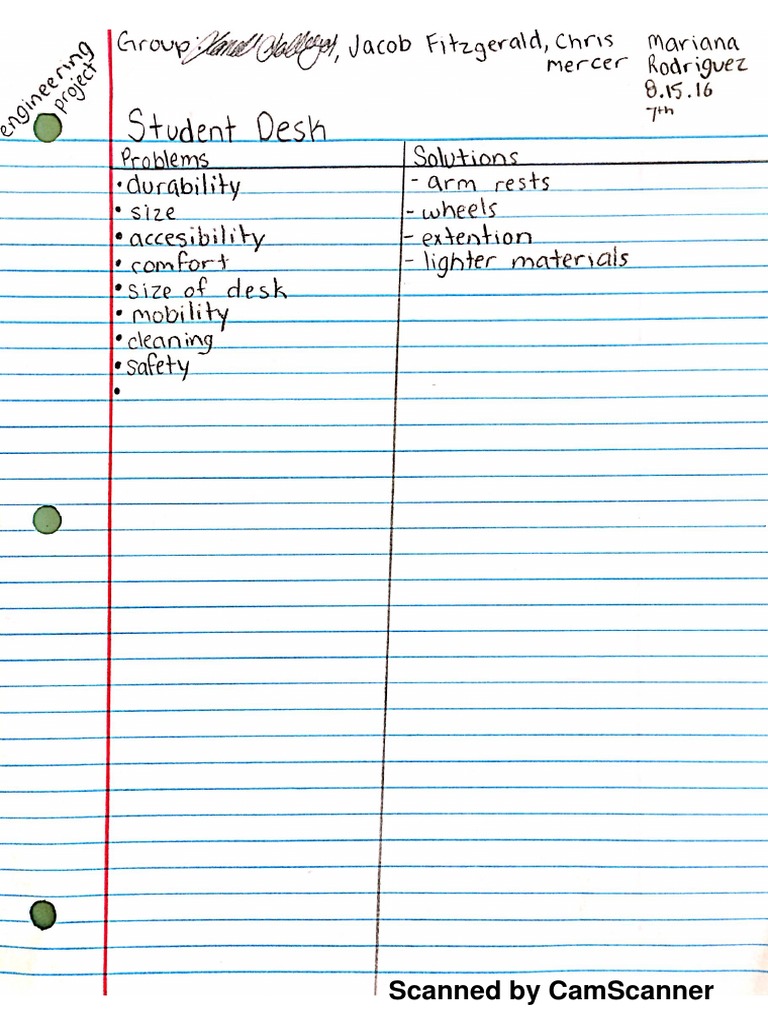 engineering
project
Group: , Jacob Fitzgerald, Chris
mercer
Mariana
Rodriguez
8.15.16
7th
Student Desk
Problems
• durability
• size
• accesibility
• comfort
• size of desk
• mobility
• cleaning
• safety
•
Solutions
- arm rests
- wheels
- extention
- lighter materials
Scanned by CamScanner